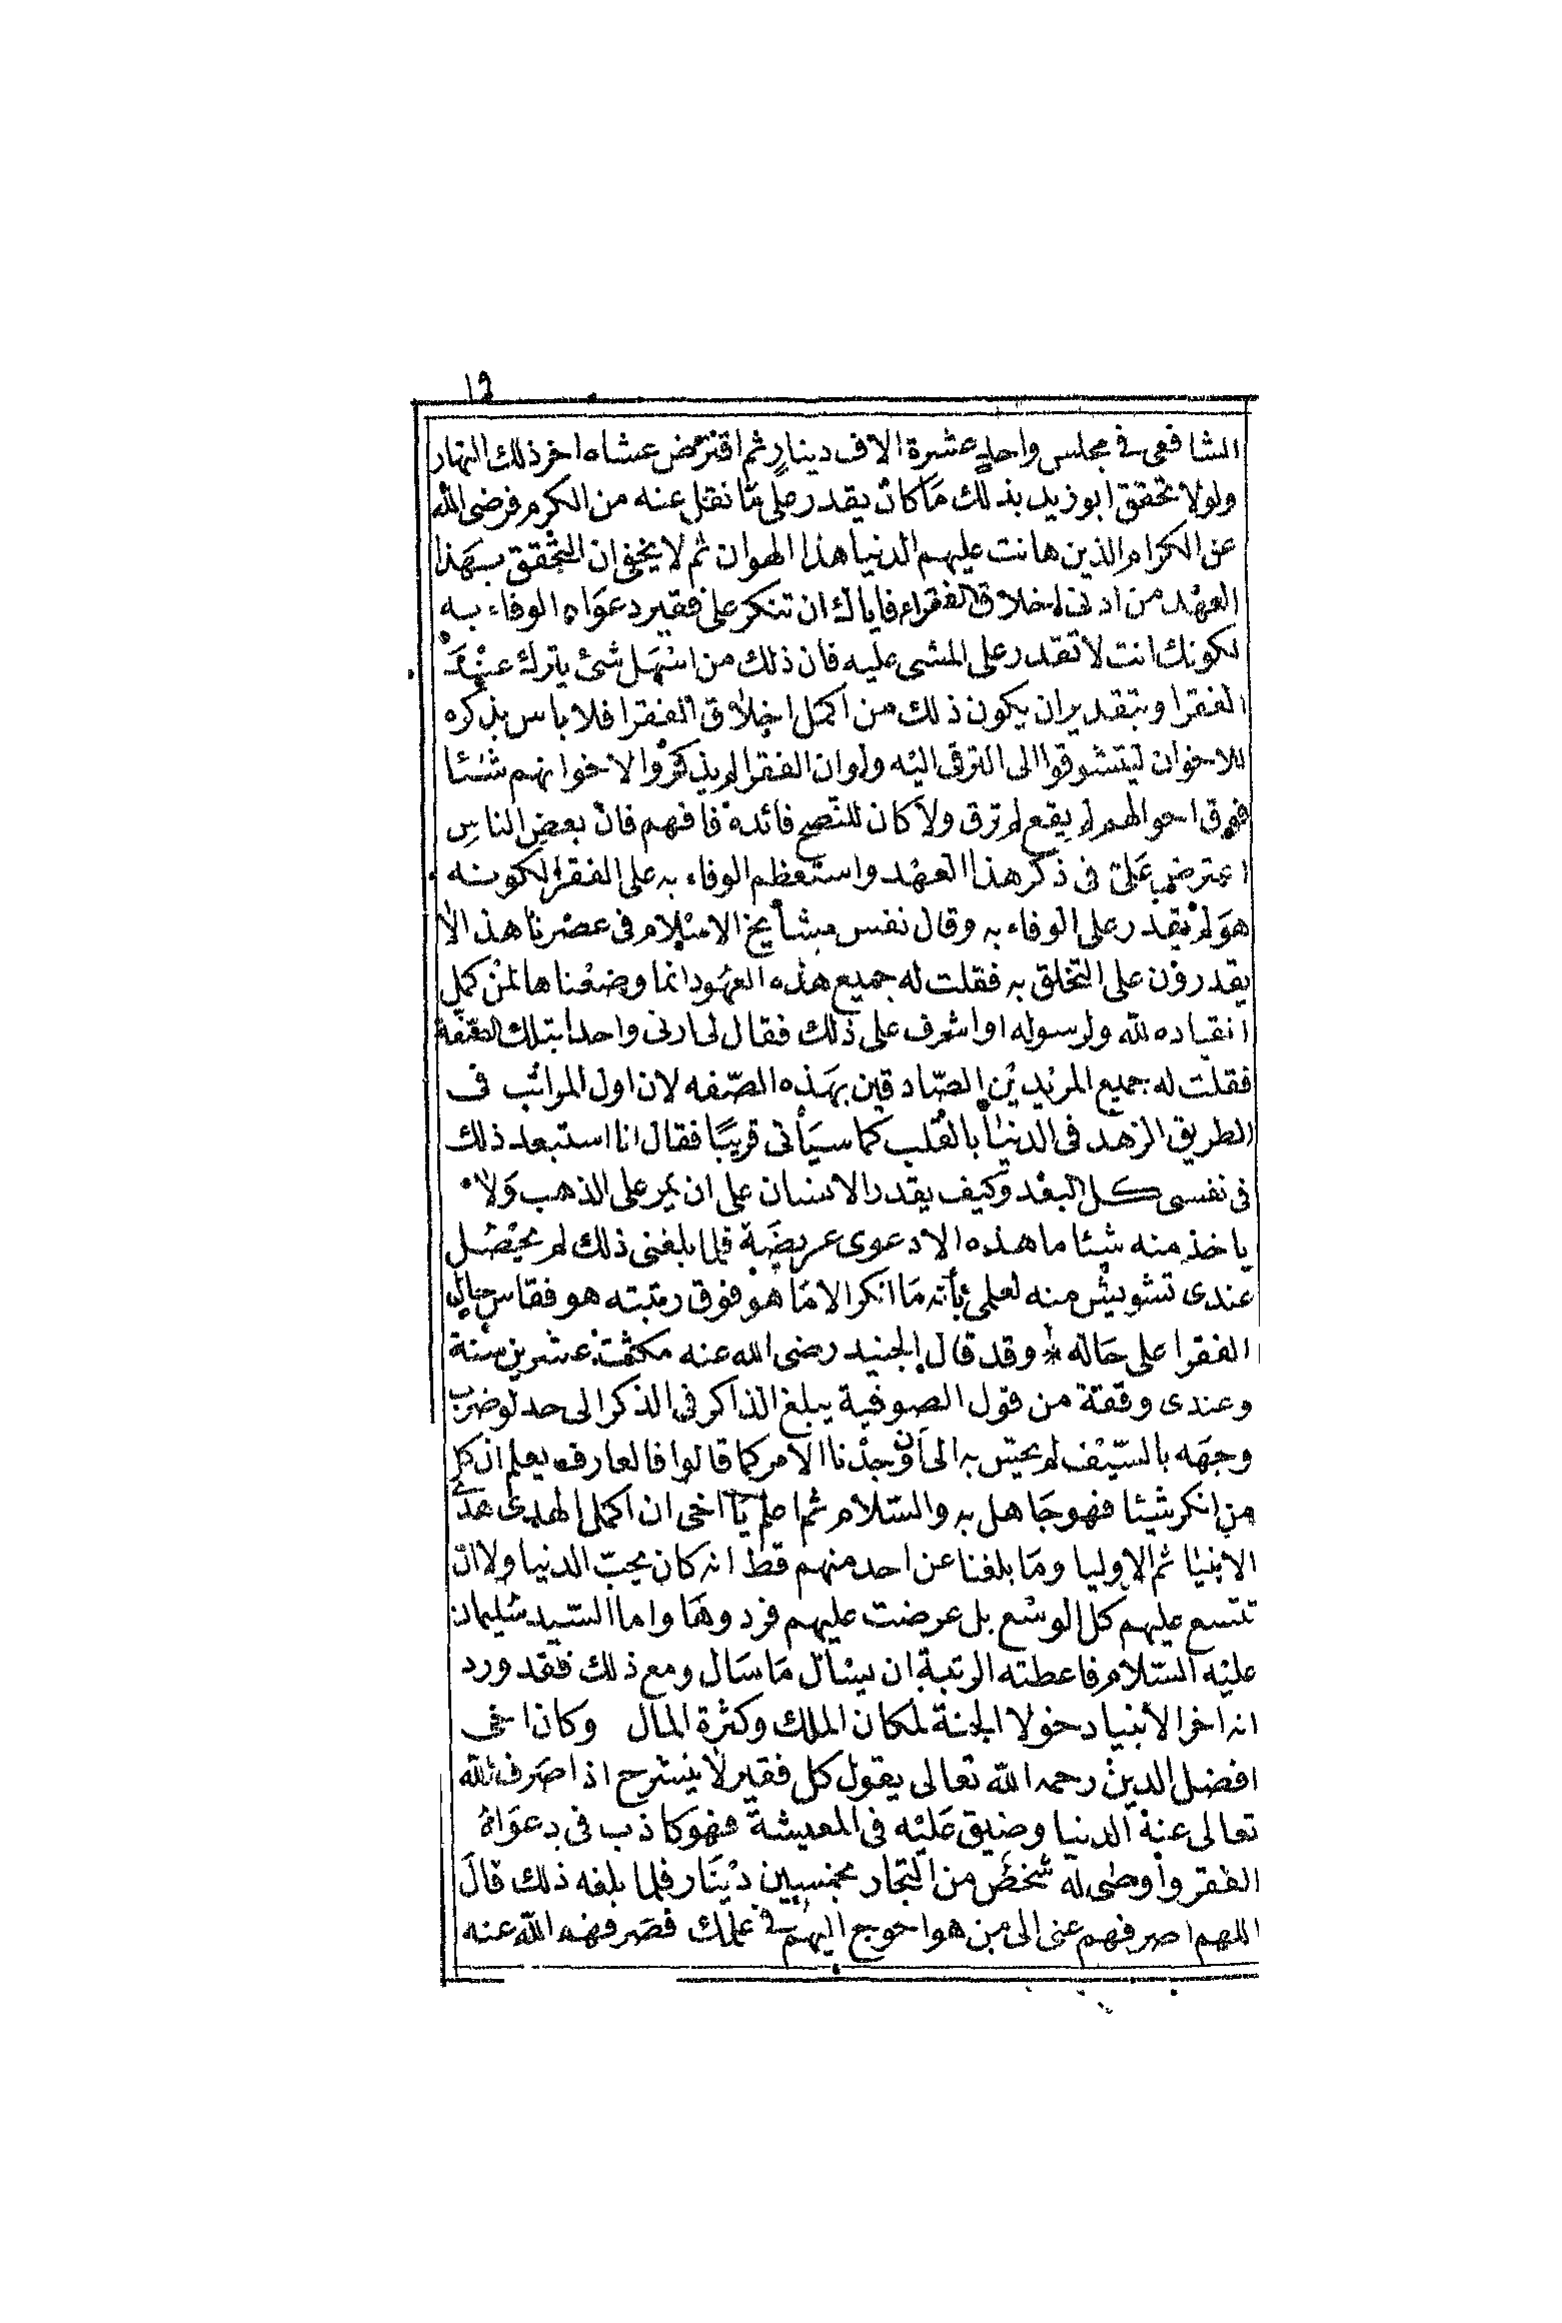 ١٩
الشافعى فى مجلس واحد عشرة الاف دينار ثم اقترض عشاه اخر ذلك النهار
ولولا تحقق ابو زيد بذلك ما كان يقدر على ما نقل عنه من الكرم فرضى الله
عن الكرام الذين هانت عليهم الدنيا هذا الهوان ثم لا يخفى ان التحقق بهذا
العهد من ادنى اخلاق الفقراء فاياك ان تنكر على فقير دعواه الوفاء به
لكونك انت لا تقدر على المشى عليه فان ذلك من اسهل شئ يترك عند
الفقرا وبتقدير ان يكون ذلك من اكمل اخلاق الفقرا فلا باس بذكره
للاخوان ليتشوقوا الى الترقى اليه ولو ان الفقرا لم يذكروا لاخوانهم شئا
فوق احوالهم لم يقع لهم ترق ولا كان للنصح فائدة فافهم فان بعض الناس
اعترض على فى ذكر هذا العهد واستعظم الوفاء به على الفقرا لكونه
هو لم يقدر على الوفاء به وقال نفس مشايخ الاسلام فى عصرنا هذا لا
يقدرون على التخلق به فقلت له جميع هذه العهود انما وضعناها لمن كمل
انقياده لله ولرسوله او اشرف على ذلك فقال لى ارنى واحدا بتلك الصفة
فقلت له جميع المريدين الصادقين بهذه الصفه لان اول المراتب فى
الطريق الزهد فى الدنيا بالقلب كما سيأتى قريبا فقال انا استبعد ذلك
فى نفسى كل البعد وكيف يقدر الانسان على ان يمر على الذهب ولا
ياخذ منه شيئا ما هذه الا دعوى عريضة فلما بلغنى ذلك لم يحصل
عندى تشويش منه لعلمى بأنه ما انكر الا ما هو فوق رتبته هو فقاس حال
الفقرا على حاله * وقد قال الجنيد رضى الله عنه مكثت عشرين سنة
وعندى وقفة من قول الصوفية يبلغ الذاكر فى الذكر الى حد لو ضرب
وجهه بالسيف لم يحس به الى أن وجدنا الامر كما قالوا فالعارف يعلم ان كل
من انكر شيئا فهو جاهل به والسلام ثم اعلم يا اخى ان اكمل الهدى هدى
الانبيا ثم الاوليا وما بلغنا عن احد منهم قط انه كان يحب الدنيا ولا ان
تتسع عليهم كل الوسع بل عرضت عليهم فردوها واما السيد سليمان
عليه السلام فاعطته الرتبة ان يسأل ما سأل ومع ذلك فقد ورد
انه اخر الأنبيا دخولا الجنة لمكان الملك وكثرة المال وكان اخى
افضل الدين رحمه الله تعالى يقول كل فقير لا ينشرح اذا صرف الله
تعالى عنه الدنيا وضيق عليه فى المعيشة فهو كاذب فى دعواه
الفقر وأوصى له شخص من التجار بخمسين دينار فلما بلغه ذلك قال
اللهم اصرفهم عنى الى من هو احوج اليهم فى عملك فصرفهم الله عنه